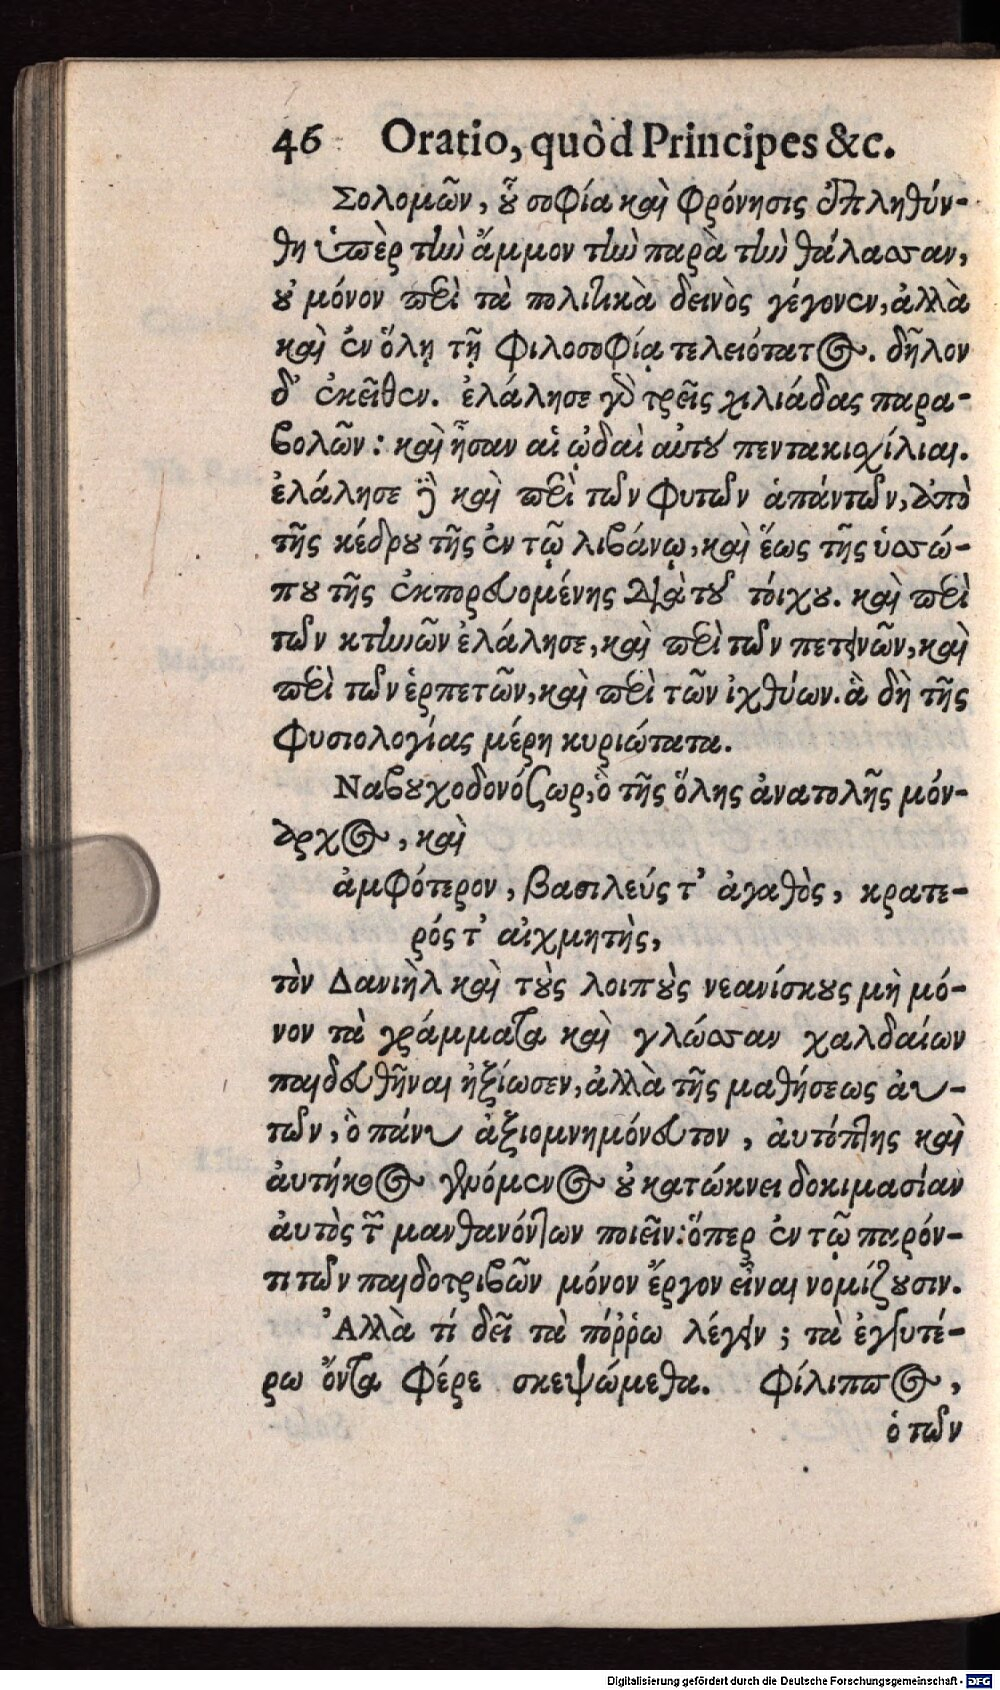 46 Oratio, quòd Principes &c.
Σολομῶν, οὗ σοφία καὶ φρόνησις ἐπληθύν-
θη ὑπὲρ τὴν ἄμμον τὴν παρὰ τὴν θάλασσαν,
οὐ μόνον περὶ τὰ πολιτικὰ δεινὸς γέγονεν, ἀλλὰ
καὶ ἐν ὅλῃ τῇ φιλοσοφίᾳ τελειότατος. δῆλον
δ' ἐκεῖθεν. ἐλάλησε γὸ τρεῖς χιλιάδας παρα-
βολῶν: καὶ ἦσαν αἱ ᾠδαὶ αὐτοῦ πεντακισχίλιαι.
ἐλάλησε ἢ καὶ περὶ τῶν φυτῶν ἁπάντων, ἀπὸ
τῆς κέδρου τῆς ἐν τῷ λιβάνῳ, καὶ ἕως τῆς ὑσσώ-
που τῆς ἐκπορευομένης διὰ τοῦ τόιχου. καὶ περὶ
τῶν κτηνῶν ἐλάλησε, καὶ περὶ τῶν πετεινῶν, καὶ
περὶ τῶν ἑρπετῶν, καὶ περὶ τῶν ἰχθύων. ἃ δὴ τῆς
φυσιολογίας μέρη κυριώτατα.
Ναβουχοδονόζωρ, ὁ τῆς ὅλης ἀνατολῆς μόν-
αρχος, καὶ
ἀμφότερον, βασιλεύς τ' ἀγαθὸς, κρατε-
ρός τ' αἰχμητὴς,
τὸν Δανιὴλ καὶ τοὺς λοιποὺς νεανίσκους μὴ μό-
νον τὰ γράμματα καὶ γλώσσαν χαλδαίων
παιδευθῆναι ἠξίωσεν, ἀλλὰ τῆς μαθήσεως ἀυ-
τῶν, ὃ πάνυ ἀξιομνημόνευτον, ἀυτόπτης καὶ
ἀυτήκοος γενόμενος οὐ κατώκνει δοκιμασίαν
ἀυτὸς τῶν μανθανόντων ποιεῖν: ὅπερ ἐν τῷ παρόν-
τι τῶν παιδοτριβῶν μόνον ἔργον εἶναι νομίζουσιν.
Ἀλλὰ τί δεῖ τὰ πόῤῥω λέγειν; τὰ ἐγγυτέ-
ρω ὄντα φέρε σκεψώμεθα. Φίλιππος,
ὁ τῶν
Digitalisierung gefördert durch die Deutsche Forschungsgemeinschaft - DFG